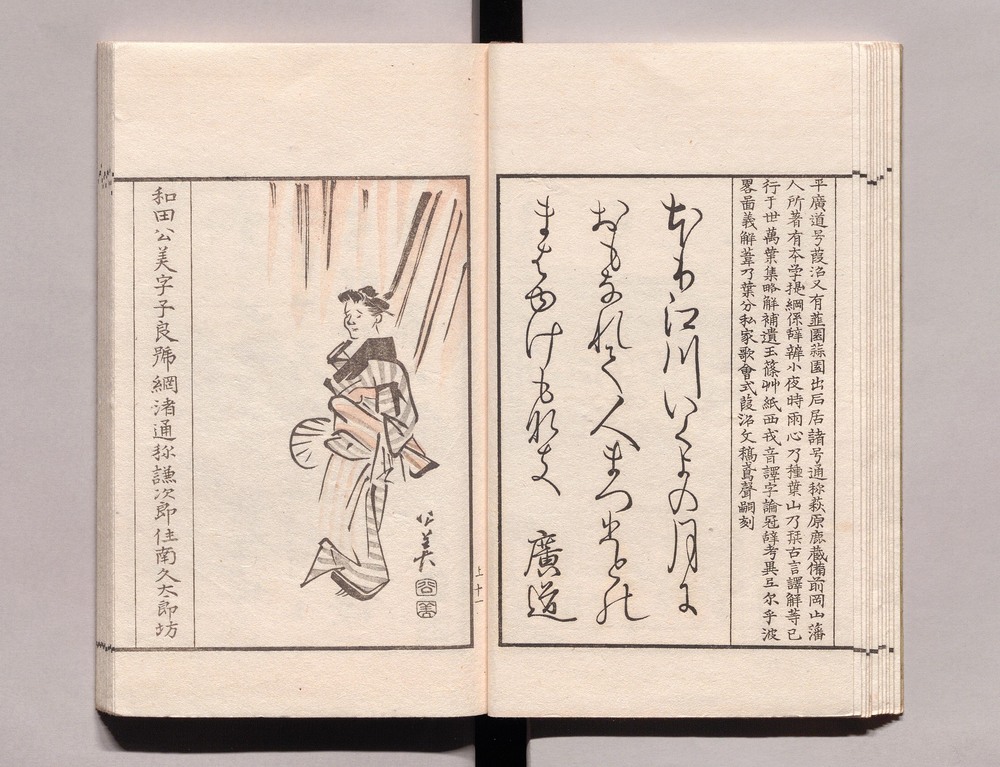 平廣道号葭沼又有韮園蒜園出石居諸号通称萩原鹿蔵備前岡山藩
人所著有本学提綱係辞辨小夜時雨心乃種葉山乃栞古言譯解等已
行于世萬葉集略解補遺玉篠艸紙西戎音譯字論冠辞考異弖尓乎波
畧啚義解葦乃葉分私家歌會式葭沼文稿鳶聲嗣刻
江川いくよの月に
おもなれて人まつ
まはゆけもなき
廣道
上十一
公美
和田公美字子良號網渚通称謙次郎住南久太郎坊